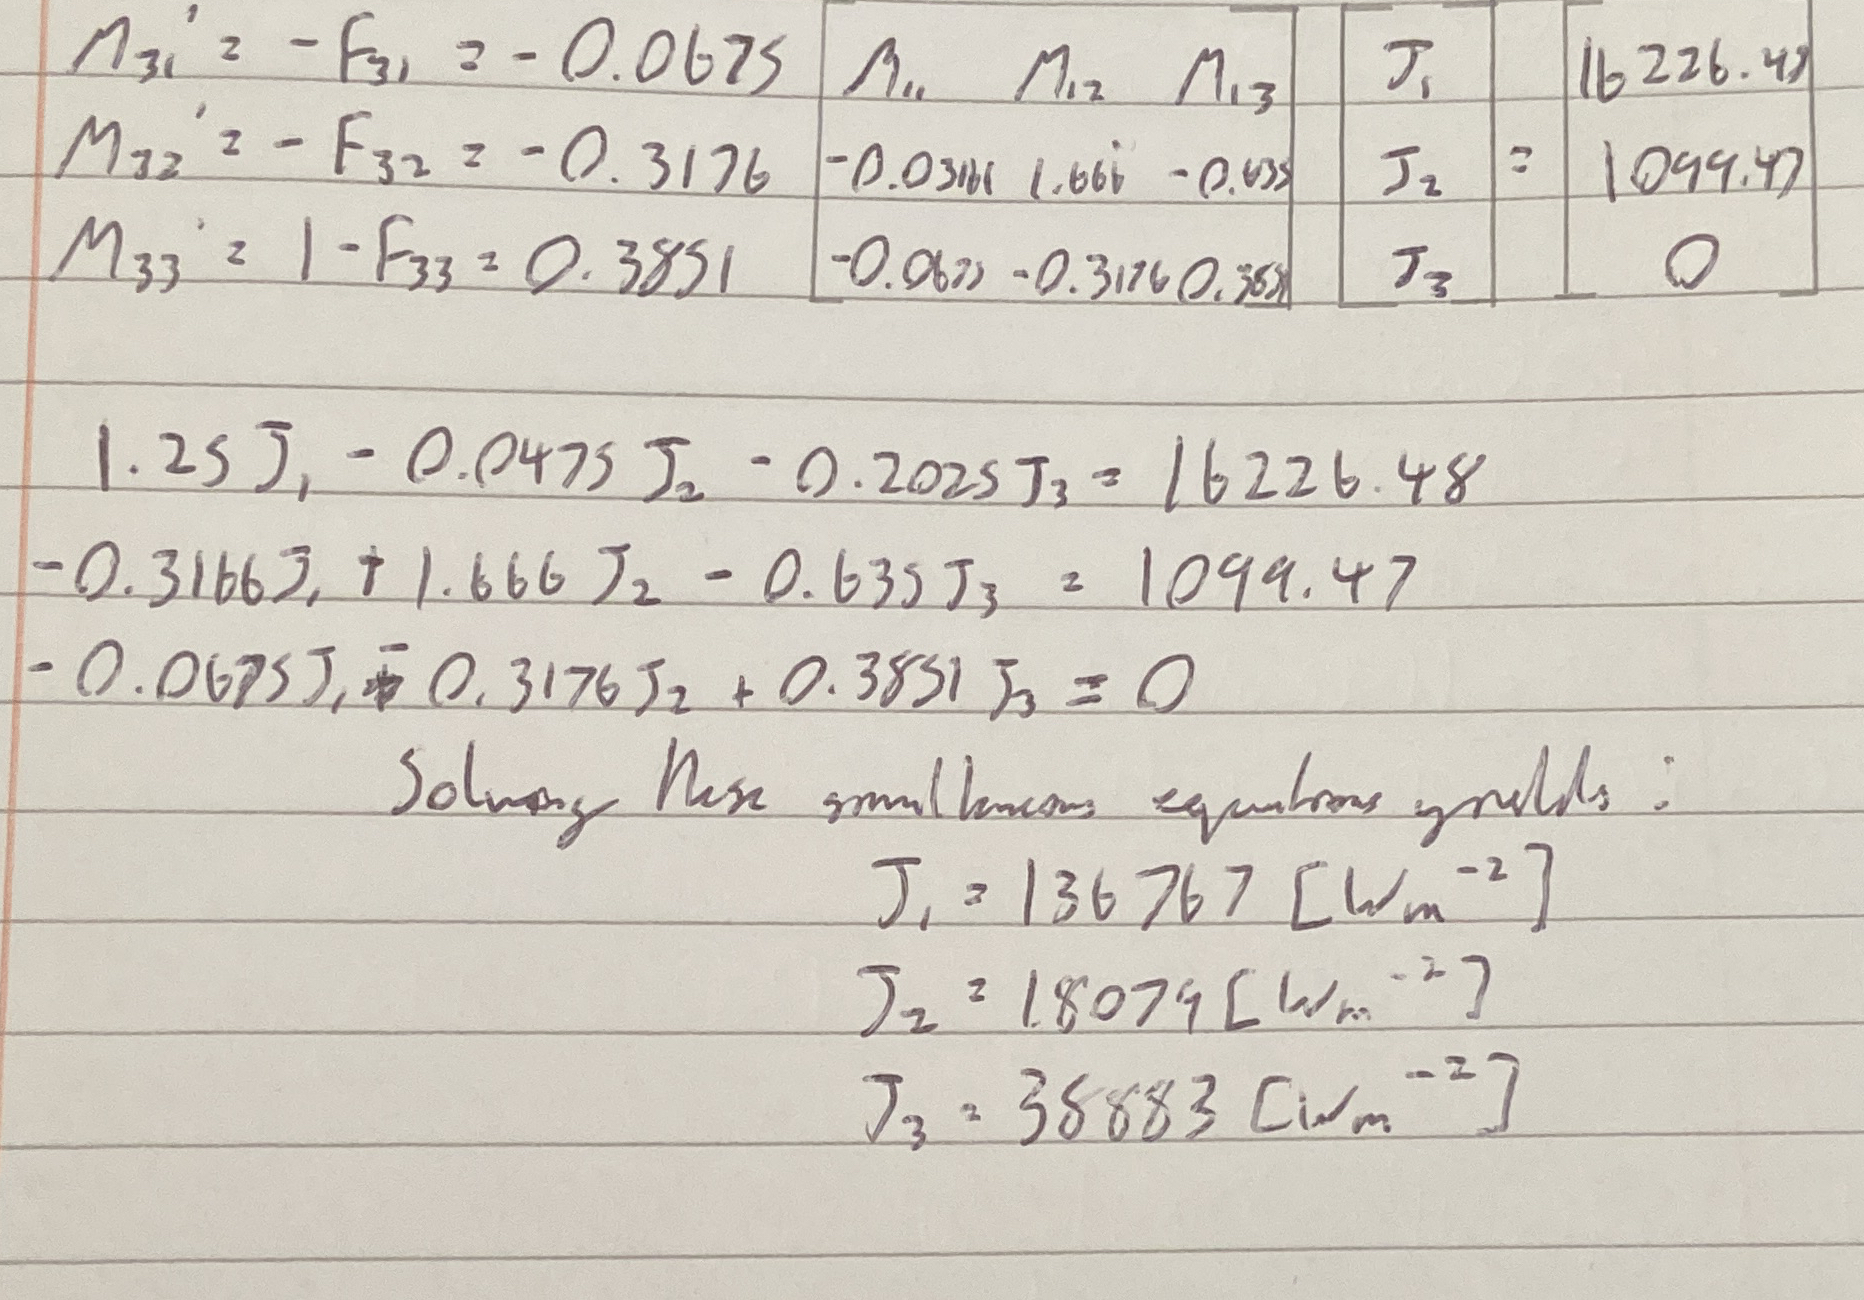 M₃₁' = -F₃₁ = -0.0675
M₃₂' = -F₃₂ = -0.3176
M₃₃' = 1-F₃₃ = 0.3851
[M₁₁ M₁₂ M₁₃] [J₁] [16226.48]
[-0.03166 1.666 -0.635] [J₂] = [1099.47]
[-0.0675 -0.3176 0.3851] [J₃] [0]
1.25J₁ - 0.0475J₂ - 0.2025J₃ = 16226.48
-0.3166J₁ + 1.666J₂ - 0.635J₃ = 1099.47
-0.0675J₁ - 0.3176J₂ + 0.3851J₃ = 0
Solving these simultaneous equations yields:
J₁ = 136767 [Wm⁻²]
J₂ = 18079 [Wm⁻²]
J₃ = 38883 [Wm⁻²]